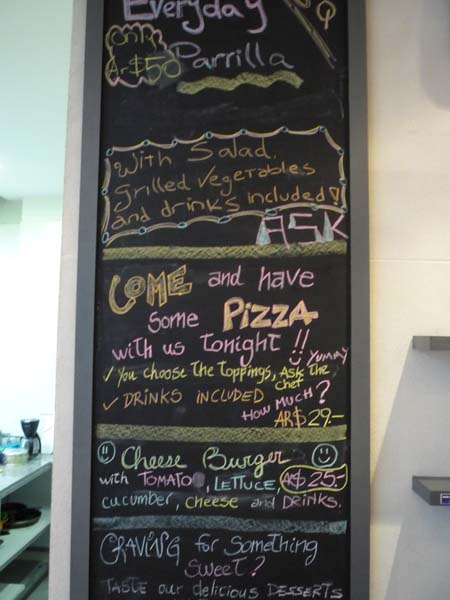 Everyday
Q
only
AR$50 Parrilla
With Salad,
Grilled Vegetables
and drinks included!
ASK
COME and have
some PIZZA
with us tonight!!
YUMMY
✓ You choose The Toppings, Ask The Chef
✓ DRINKS INCLUDED
HOW MUCH?
AR$29.-
Cheese Burger
with TOMATO, LETTUCE, AR$25.-
cucumber, cheese and DRINKS.
CRAVING for Something
SWeeT?
TASTE our delicious DESSERTS